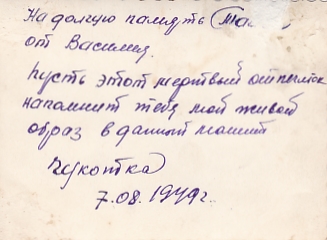 На долгую память
от Василия.
Пусть этот мертвый отпечаток
напомнит тебе мой живой
образ в данный момент
Чукотка
7.08.1949г.